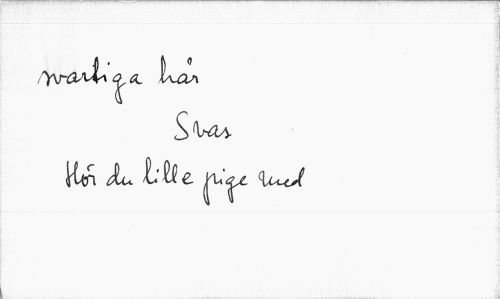 svartiga hår
Svar
Hör du lille pige med